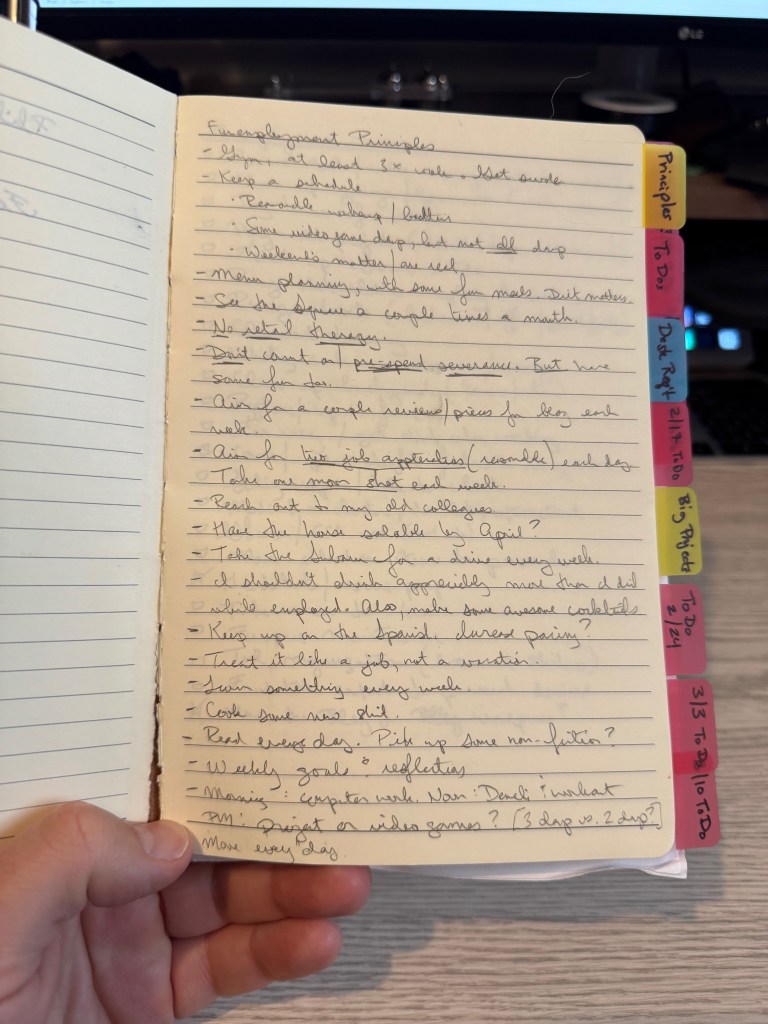 Funemployment Principles
- Gym, at least 3x week. Get swole
- Keep a schedule
· Reasonable wakeup / bedtimes
· Some video game days, but not all days
· Weekends matter / are real
- Menu planning, with some fun meals. Diet matters.
- See the Square a couple times a month.
- No retail therapy.
- Don't count on / pre-spend severance. But have
some fun too.
- Aim for a couple reviews/pieces for blog each
week.
- Aim for two job applications (reasonable) each day
Take one moon shot each week.
- Reach out to my old colleagues
- Have the house salable by April?
- Take the Subaru for a drive every week.
- I shouldn't drink appreciably more than I did
while employed. Also, make some awesome cocktails
- Keep up on the Spanish. Increase pairing?
- Treat it like a job, not a vacation.
- Learn something every week.
- Cook some new shit.
- Read every day. Pick up some non-fiction?
- Weekly goals & reflections
- Morning: computer work. Noon: & workout
PM: project or video games? [3 days vs. 2 days?]
Move every day.
Principles
To Dos
Desk Reg't
2/17 To Do
Big Projects
To Do
2/24
3/3 To Do
3/10 To Do
LG